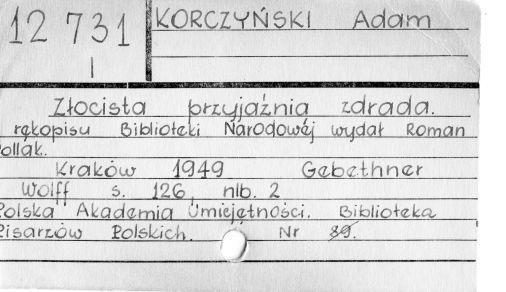 12 731 KORCZYŃSKI Adam
I
Złocista przyjaźnią zdrada.
rękopisu Biblioteki Narodowej wydał Roman
ollak.
Kraków 1949 Gebethner
Wolff s. 126, nlb. 2
Polska Akademia Umiejętności. Biblioteka
Pisarzów Polskich. Nr 89.